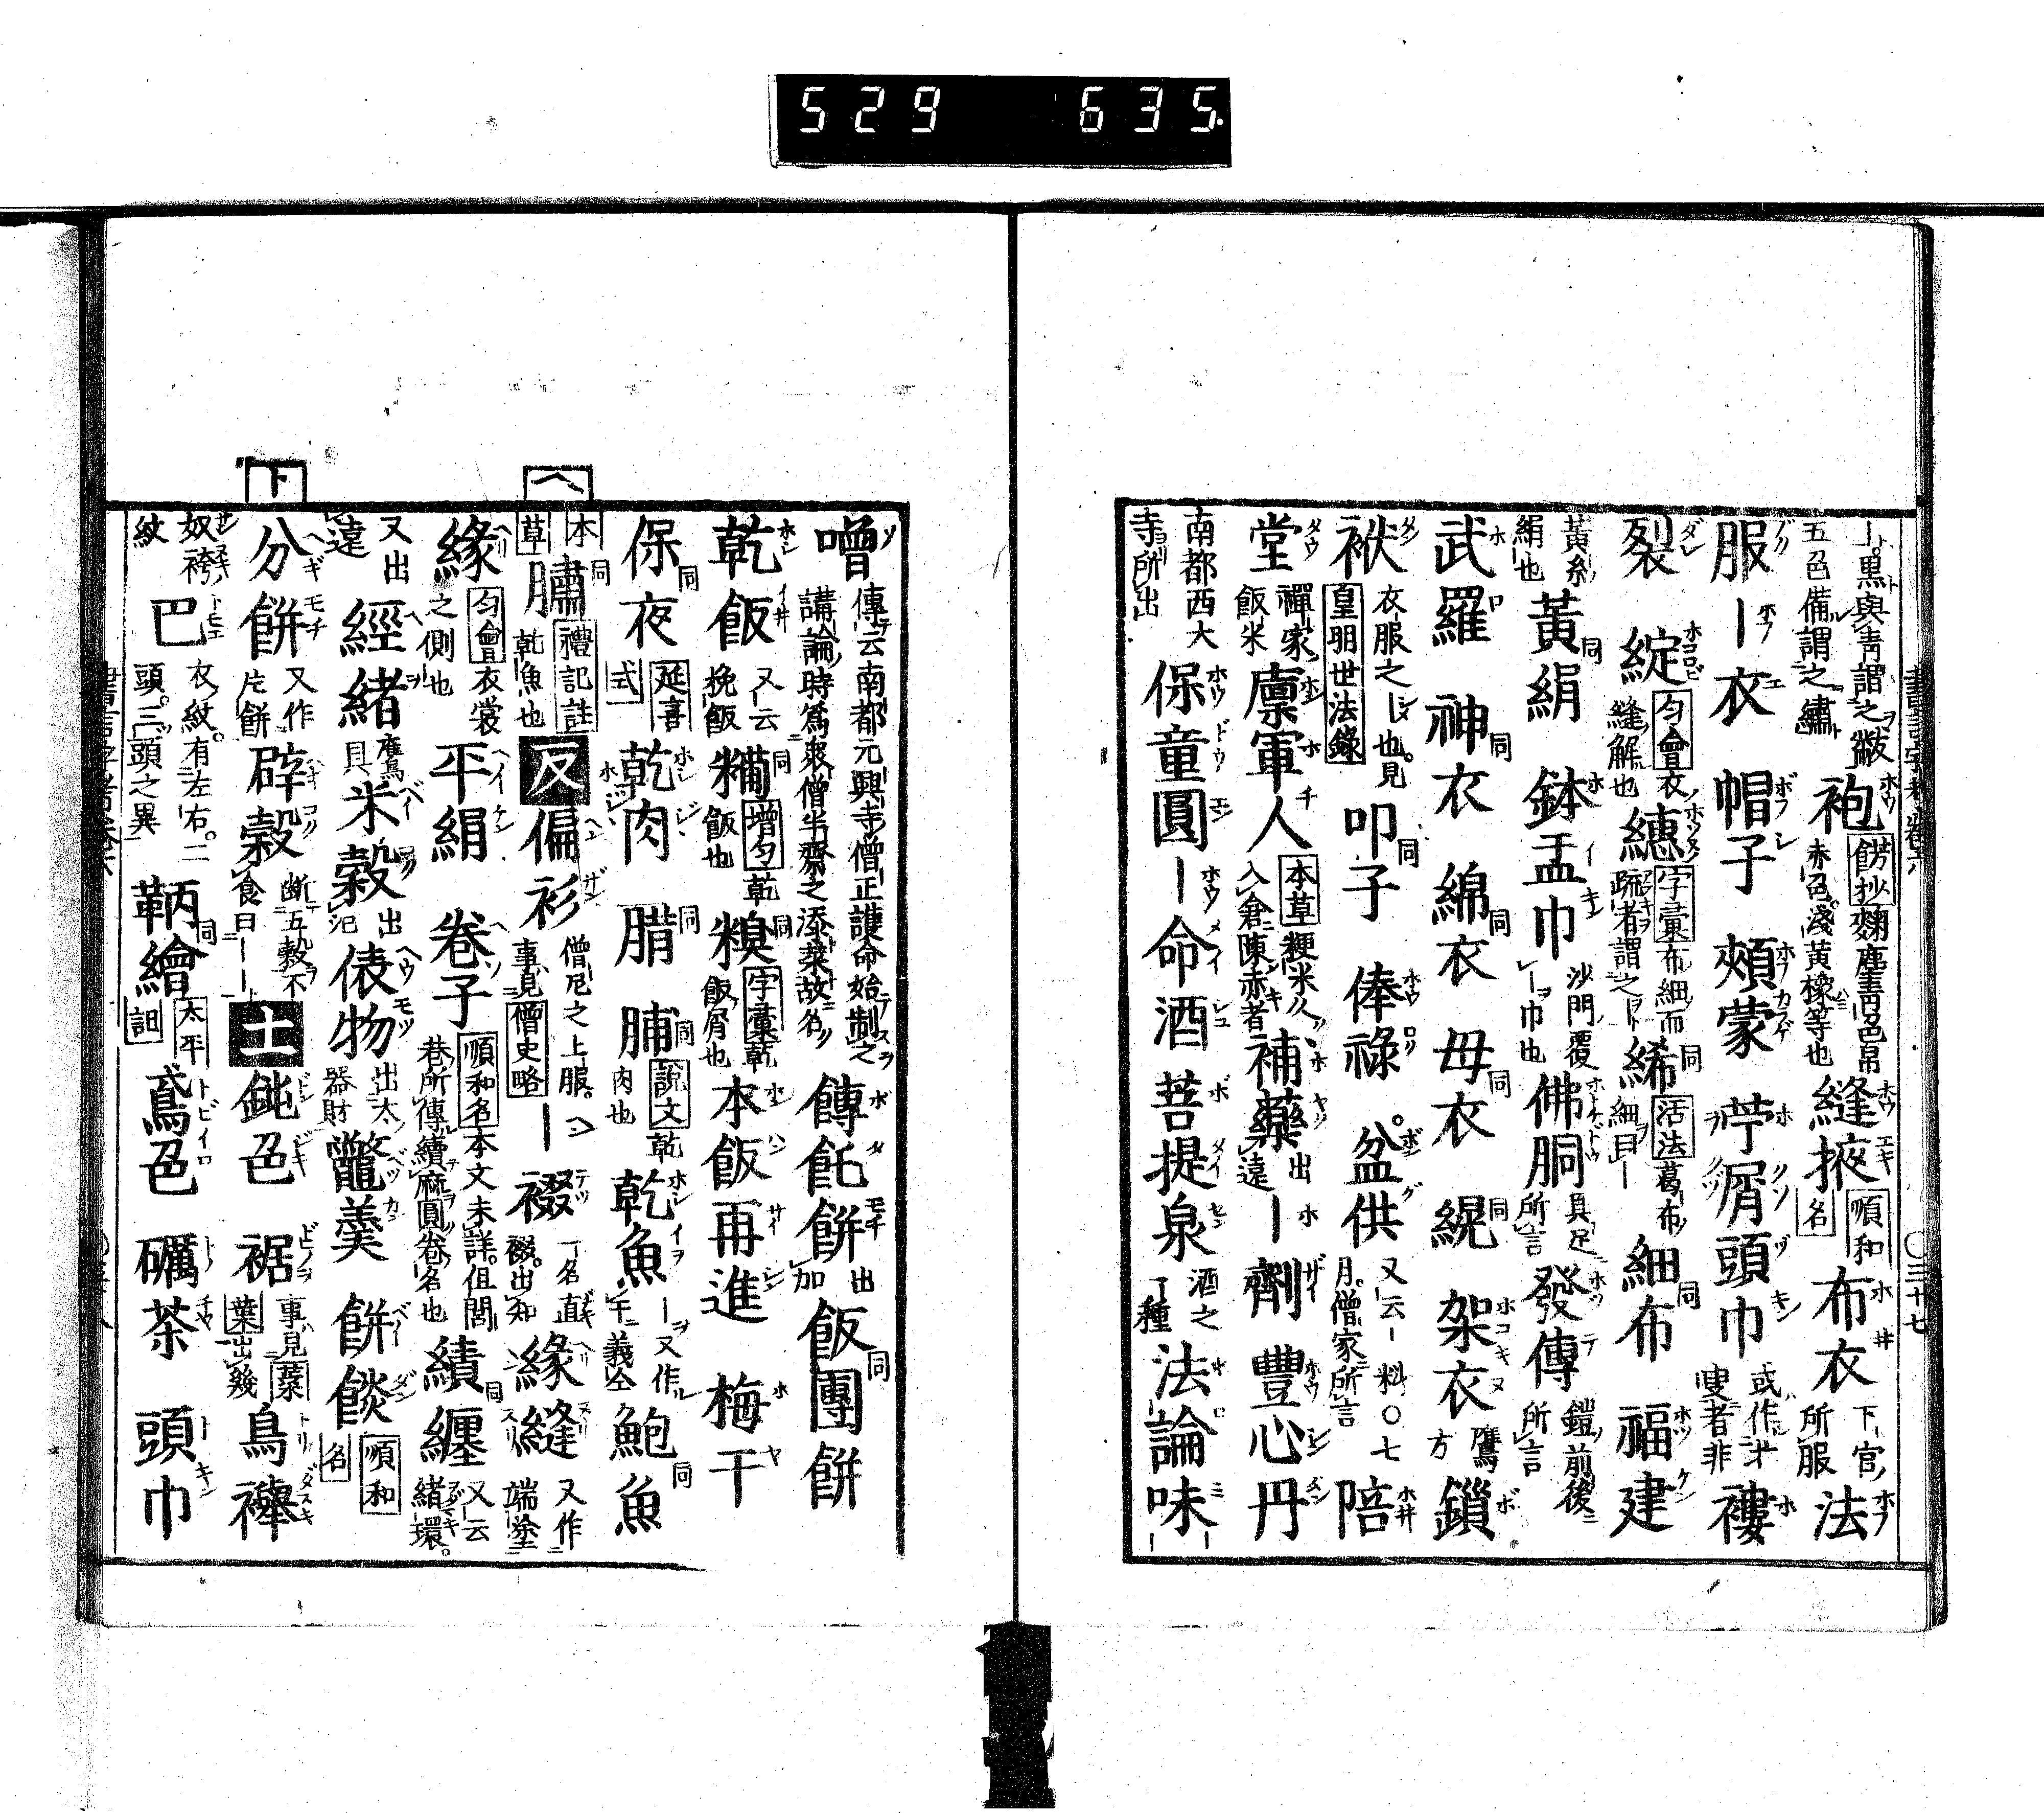 529 635.
ト。黒與青謂之黻
五色備謂之繡
袍 餝抄麹塵青色帛
赤色淺黄橡等也
縫掖 順和名
布衣 下官所服
法
服 ー衣 帽子 頰蒙 苧屑頭巾 或作
叟者非 褸
裂 綻 匀會衣
縫解也 繐 字彙布細而
疏者謂之ー 絺同 活法葛布
細目ー 細布同 福建
黄糸
絹也 黄絹同 鉢盂巾 沙門覆
ー巾也 佛胴 具足
所言 發傳 鎧前後
所言
武羅 神衣同 綿衣同 母衣同 縨同 架衣 鷹
方 鎖
袱 衣服之ー也。見
皇明世法錄 叩子同 俸祿 盆供 又云ー料〇七
月。僧家所言 陪
堂 禪家
飯米 廩軍人 本草粳米久
入倉陳赤者 補藥 出
遠 ー劑 豐心丹
南都西大
寺所出 保童圓 ー命酒 菩提泉 酒之
了種 法論味ー
書言字考卷六 〇三十七
噌 傳云南都元興寺僧正護命始制之
講論時爲衆僧半齋之添菜故名 餺飥餅 出
加 飯團餅同
乾飯 又云
挽飯 糒同 增匀乾
飯也 糗同 字彙乾
飯屑也 本飯再進 梅干
保夜同 延喜
式 乾肉 腊同 脯同 說文乾
肉也 乾魚 ー又作
干義仝 鮑魚同
へ
本
草 鱐同 禮記註
乾魚也 反 偏衫 僧尼之上服。
事見僧史略 ー綴 一名直
綴。出知 緣縫 又作
端塗
緣 匀會衣裳
之側也 平絹 卷子 順和名本文未詳。但閭
巷所傳續麻圓卷名也 績纏同 又云
緒環。
又出
遠 經緒 鷹
具 米穀 出
汜 俵物 出太
器財 鼈羹 餅餤 順和
名
ト
分餅 又作
片餅 辟穀 断五穀不
食曰ーー 土 鈍色 裾 事見蘂
葉出幾 鳥襷
奴袴
紋 巴 衣紋。有左右。二
頭。三頭之異 鞆繪同 太平
詔 鳶色 礪茶 頭巾